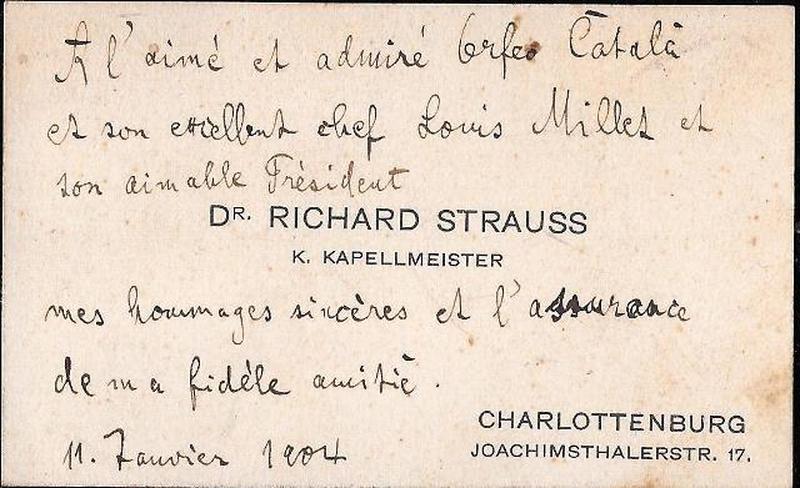 A l'aimé et admiré Orfeo Català
et son excellent chef Louis Millet et
son aimable Président
DR. RICHARD STRAUSS
K. KAPELLMEISTER
mes hommages sincères et l'assurance
de ma fidèle amitiè.
11. Janvier 1904
CHARLOTTENBURG
JOACHIMSTHALERSTR. 17.